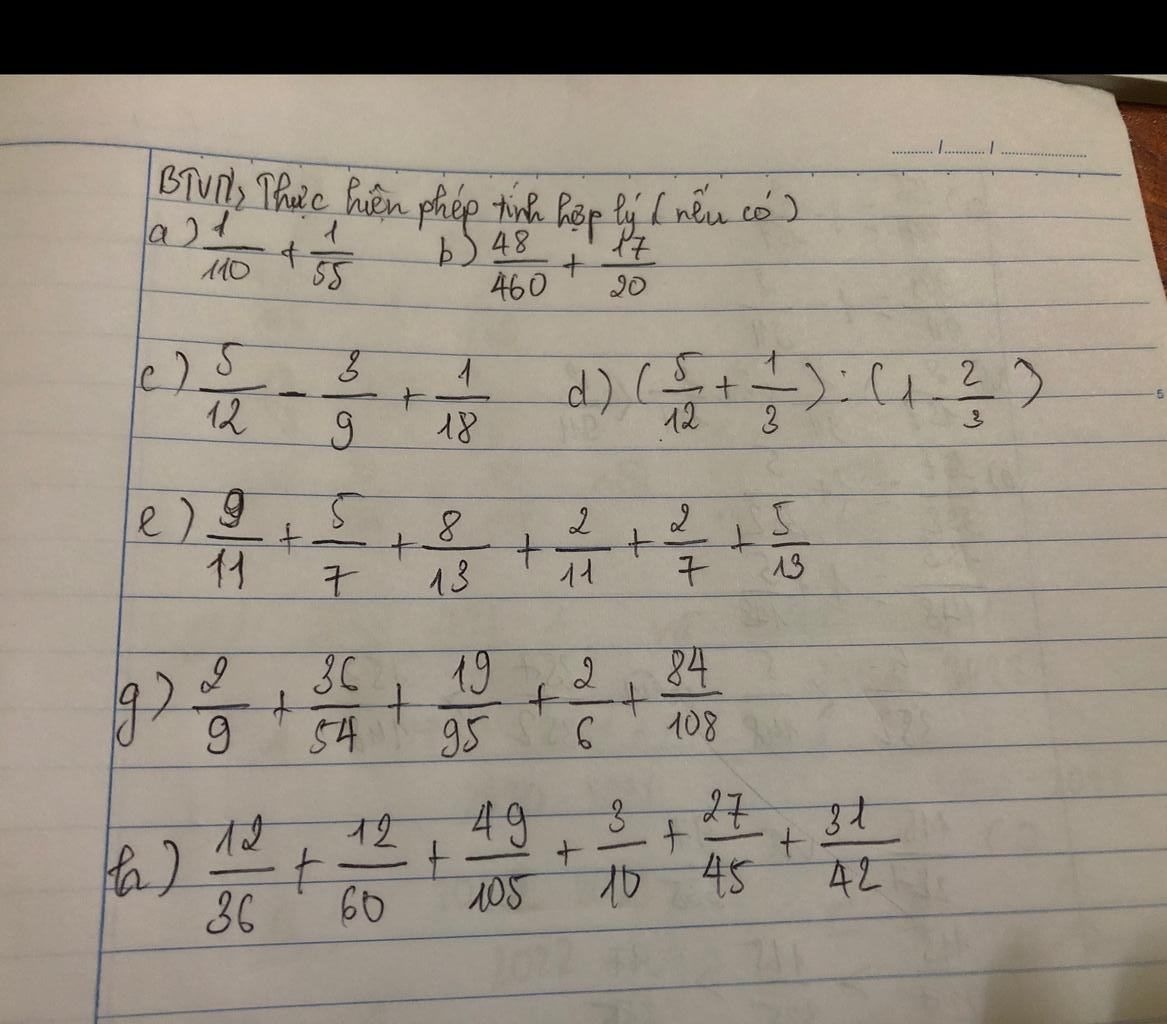 BTVN: Thực hiện phép tính hợp lý (nếu có)
a) 1/110 + 1/55 b) 48/460 + 17/20
c) 5/12 - 3/9 + 1/18 d) (5/12 + 1/3) : (1 - 2/3)
e) 9/11 + 5/7 + 8/13 + 2/11 + 2/7 + 5/13
g) 2/9 + 36/54 + 19/95 + 2/6 + 84/108
h) 12/36 + 12/60 + 49/105 + 3/10 + 27/45 + 31/42